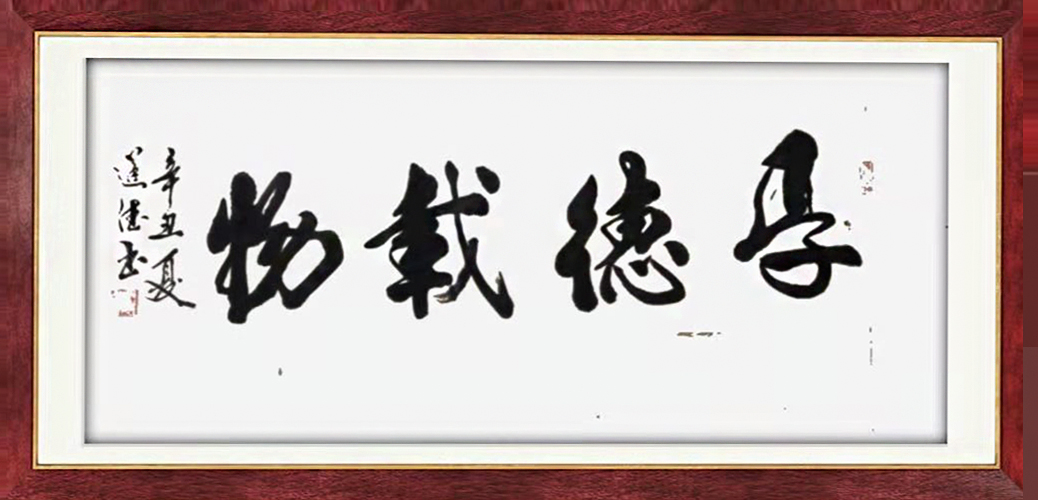 厚德載物
辛丑夏
道德書